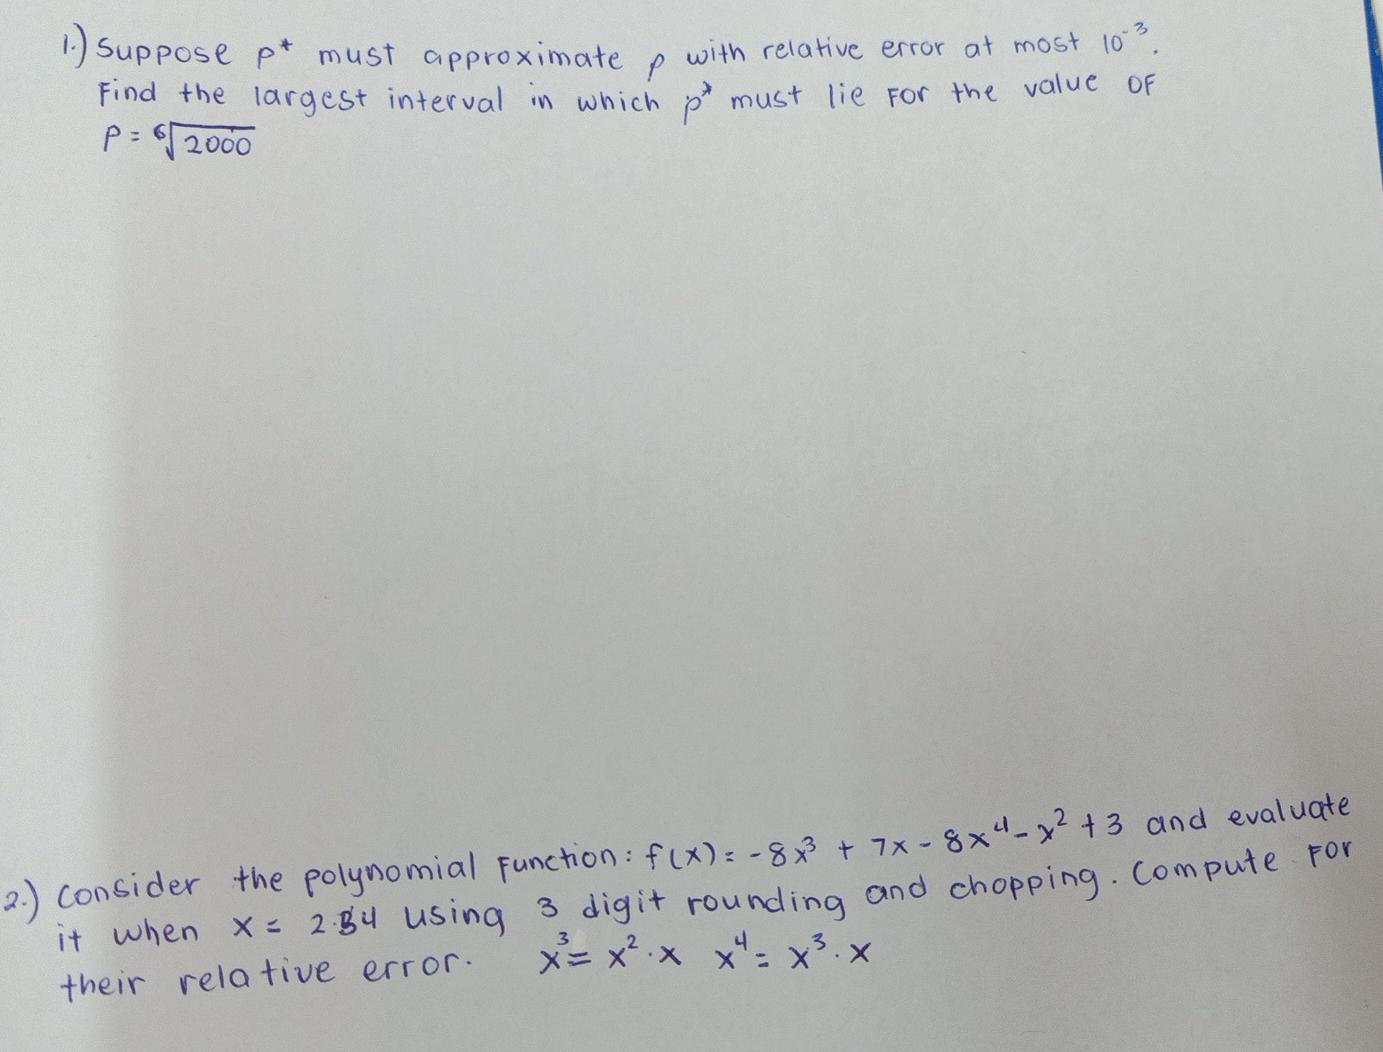 1.) Suppose p* must approximate p with relative error at most 10⁻³.
Find the largest interval in which p* must lie for the value of
p = ⁶√2000
2.) Consider the polynomial function: f(x) = -8x³ + 7x - 8x⁴ - x² + 3 and evaluate
it when x = using 3 digit rounding and chopping. Compute for
their relative error. x³ = x²·x x⁴ = x³·x